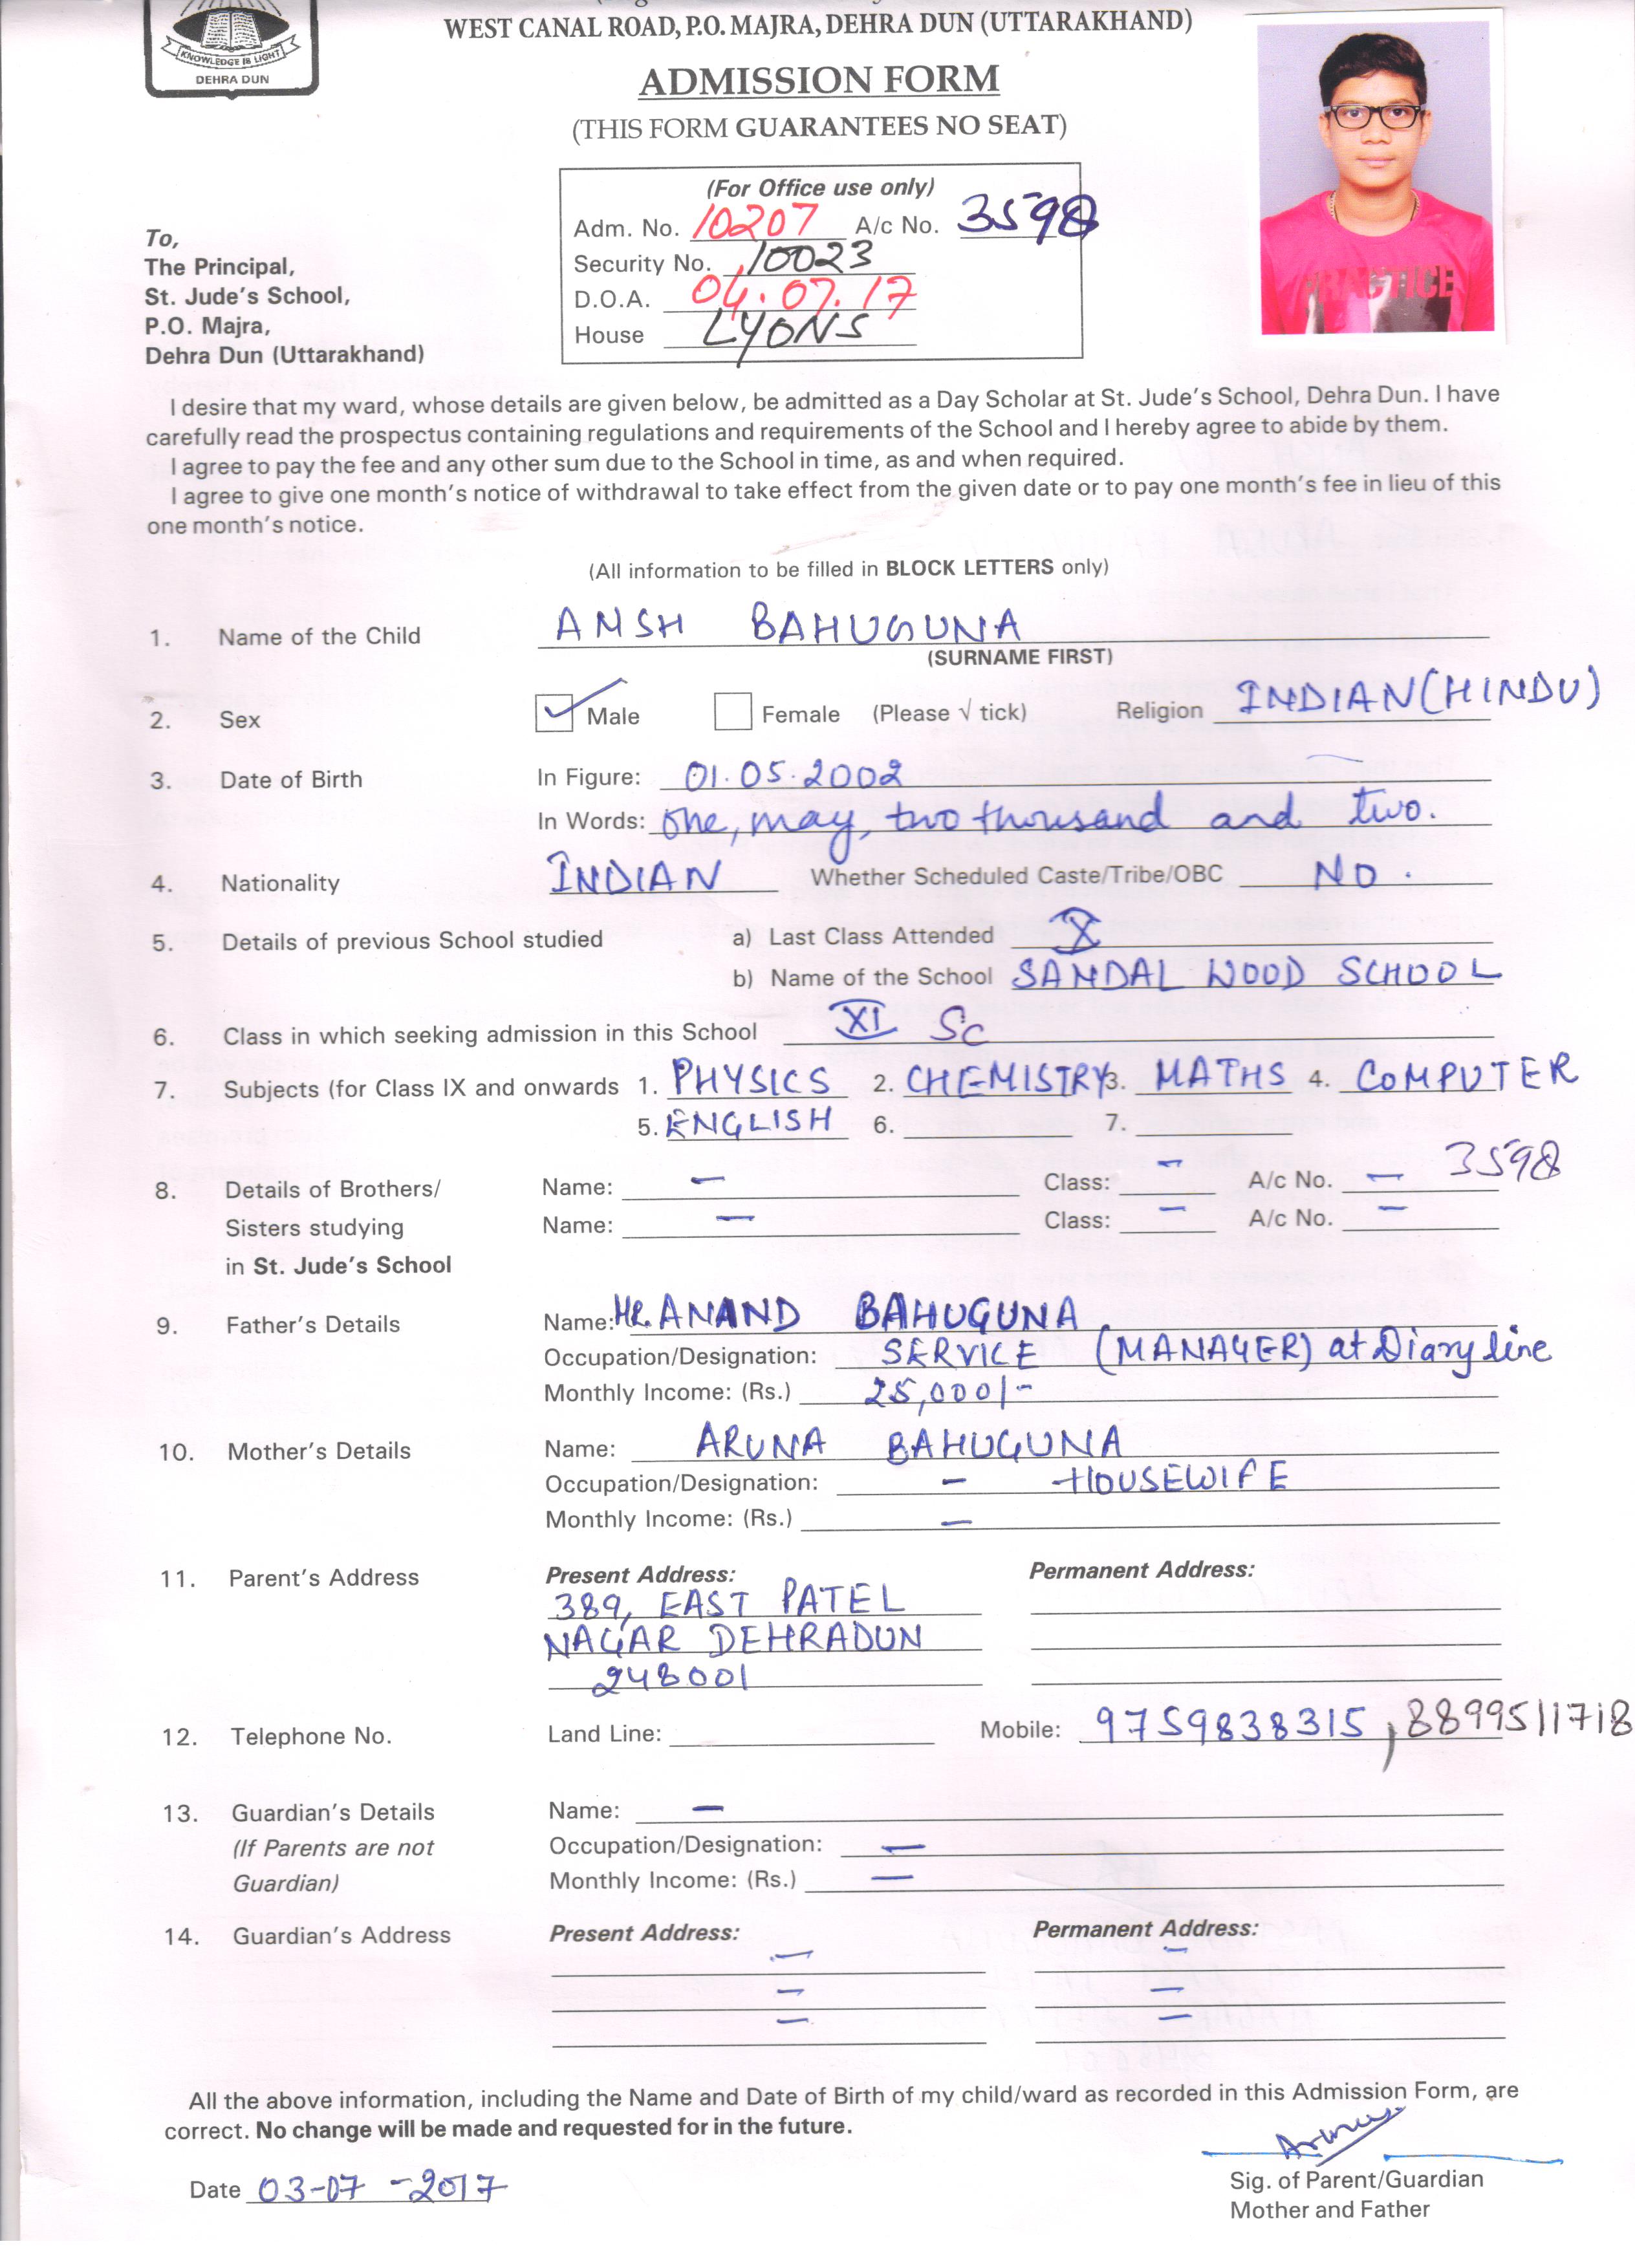 KNOWLEDGE IS LIGHT
DEHRA DUN
WEST CANAL ROAD, P.O. MAJRA, DEHRA DUN (UTTARAKHAND)
ADMISSION FORM
(THIS FORM GUARANTEES NO SEAT)
PRACTICE
(For Office use only)
Adm. No. 10207 A/c No. 3598
Security No. 10023
D.O.A. 04.07.17
House LYONS
To,
The Principal,
St. Jude's School,
P.O. Majra,
Dehra Dun (Uttarakhand)
I desire that my ward, whose details are given below, be admitted as a Day Scholar at St. Jude's School, Dehra Dun. I have
carefully read the prospectus containing regulations and requirements of the School and I hereby agree to abide by them.
I agree to pay the fee and any other sum due to the School in time, as and when required.
I agree to give one month's notice of withdrawal to take effect from the given date or to pay one month's fee in lieu of this
one month's notice.
(All information to be filled in BLOCK LETTERS only)
1. Name of the Child ANSH BAHUGUNA
(SURNAME FIRST)
2. Sex Male Female (Please √ tick) Religion INDIAN (HINDU)
3. Date of Birth In Figure: 01.05.2002
In Words: One, may, two thousand and two.
4. Nationality INDIAN Whether Scheduled Caste/Tribe/OBC NO.
5. Details of previous School studied a) Last Class Attended X
b) Name of the School SANDAL WOOD SCHOOL
6. Class in which seeking admission in this School XI Sc
7. Subjects (for Class IX and onwards 1. PHYSICS 2. CHEMISTRY 3. MATHS 4. COMPUTER
5. ENGLISH 6. 7.
8. Details of Brothers/ Name: – Class: – A/c No. – 3598
Sisters studying Name: – Class: – A/c No. –
in St. Jude's School
9. Father's Details Name: Mr. ANAND BAHUGUNA
Occupation/Designation: SERVICE (MANAGER) at Diary line
Monthly Income: (Rs.) 25,000/-
10. Mother's Details Name: ARUNA BAHUGUNA
Occupation/Designation: – HOUSEWIFE
Monthly Income: (Rs.) –
11. Parent's Address Present Address: Permanent Address:
389, EAST PATEL
NAGAR DEHRADUN
248001
12. Telephone No. Land Line: Mobile: 9759838315, 8899511718
13. Guardian's Details Name: –
(If Parents are not Occupation/Designation: –
Guardian) Monthly Income: (Rs.) –
14. Guardian's Address Present Address: Permanent Address:
– –
– –
– –
All the above information, including the Name and Date of Birth of my child/ward as recorded in this Admission Form, are
correct. No change will be made and requested for in the future.
Date 03-07-2017
Sig. of Parent/Guardian
Mother and Father